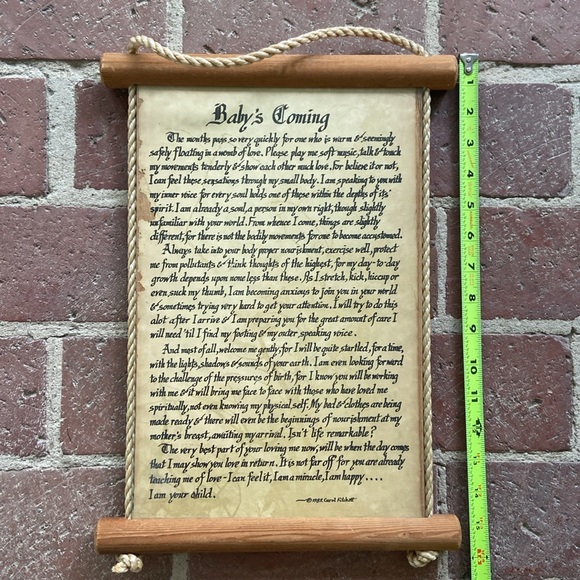 Baby's Coming
The months pass so very quickly for one who is warm & seemingly
safely floating in a womb of love. Please play me soft music, talk & touch
my movements tenderly & show each other much love. For believe it or not,
I can feel these sensations through my small body. I am speaking to you with
my inner voice for every soul holds one of those within the depths of its'
spirit. I am already a soul, a person in my own right, though slightly
unfamiliar with your world. From whence I come, things are slightly
different, for there is not the bodily movements for one to become accustomed.
Always take into your body proper nourishment, exercise well, protect
me from pollutants & think thoughts of the highest, for my day-to-day
growth depends upon none less than these. As I stretch, kick, hiccup or
even, suck my thumb, I am becoming anxious to join you in your world
& sometimes trying very hard to get your attention. I will try to do this
alot after I arrive & I am preparing you for the great amount of care I
will need 'til I find my footing & my outer speaking voice.
And most of all, welcome me gently, for I will be quite startled, for a time,
with the lights, shadows & sounds of your earth. I am even looking forward
to the challenge of the pressures of birth, for I know you will be working
with me & it will bring me face to face with those who have loved me
spiritually, not even knowing my physical self. My bed & clothes are being
made ready & there will even be the beginnings of nourishment at my
mother's breast, awaiting my arrival. Isn't life remarkable?
The very best part of your loving me now, will be when the day comes
that I may show you love in return. It is not far off for you are already
teaching me of love - I can feel it, I am a miracle, I am happy....
I am your child.
Carol
1
2
3
4
5
6
7
8
9
10
11